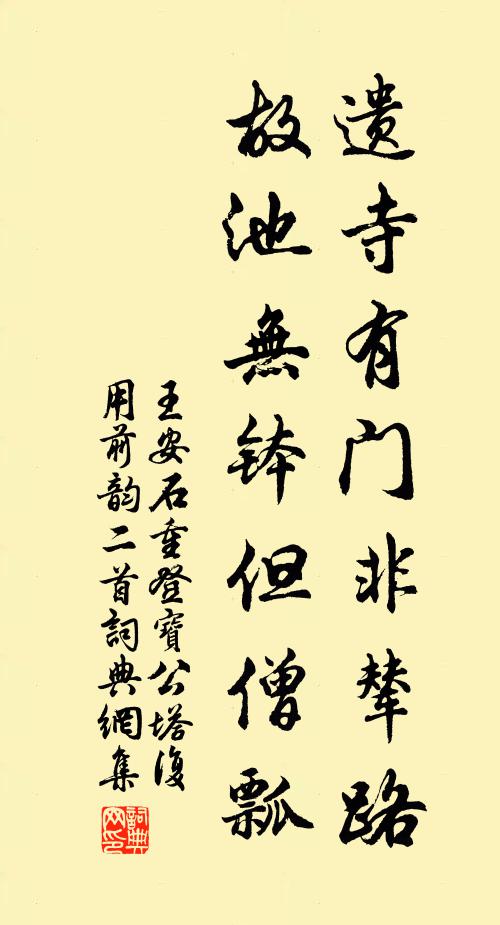 遗寺有门非辇路
故池無钵但僧瓢
王安石重登寶公塔復
用前韵二首詞典網集
詞典
網印